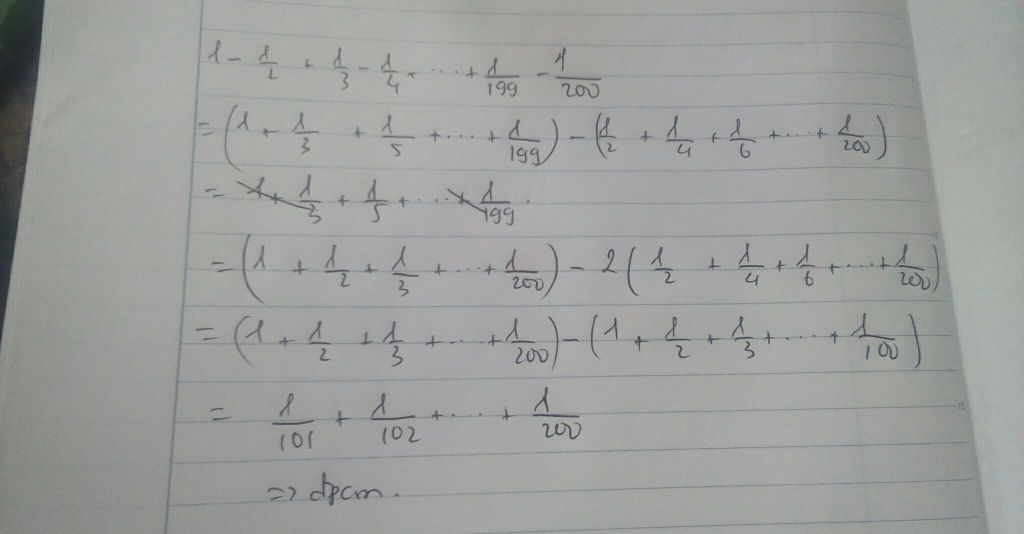 1 - 1/2 + 1/3 - 1/4 + ... + 1/199 - 1/200
= (1 + 1/3 + 1/5 + ... + 1/199) - (1/2 + 1/4 + 1/6 + ... + 1/200)
= 1 + 1/3 + 1/5 + ... + 1/199.
= (1 + 1/2 + 1/3 + ... + 1/200) - 2(1/2 + 1/4 + 1/6 + ... + 1/200)
= (1 + 1/2 + 1/3 + ... + 1/200) - (1 + 1/2 + 1/3 + ... + 1/100)
= 1/101 + 1/102 + ... + 1/200
=> đpcm.